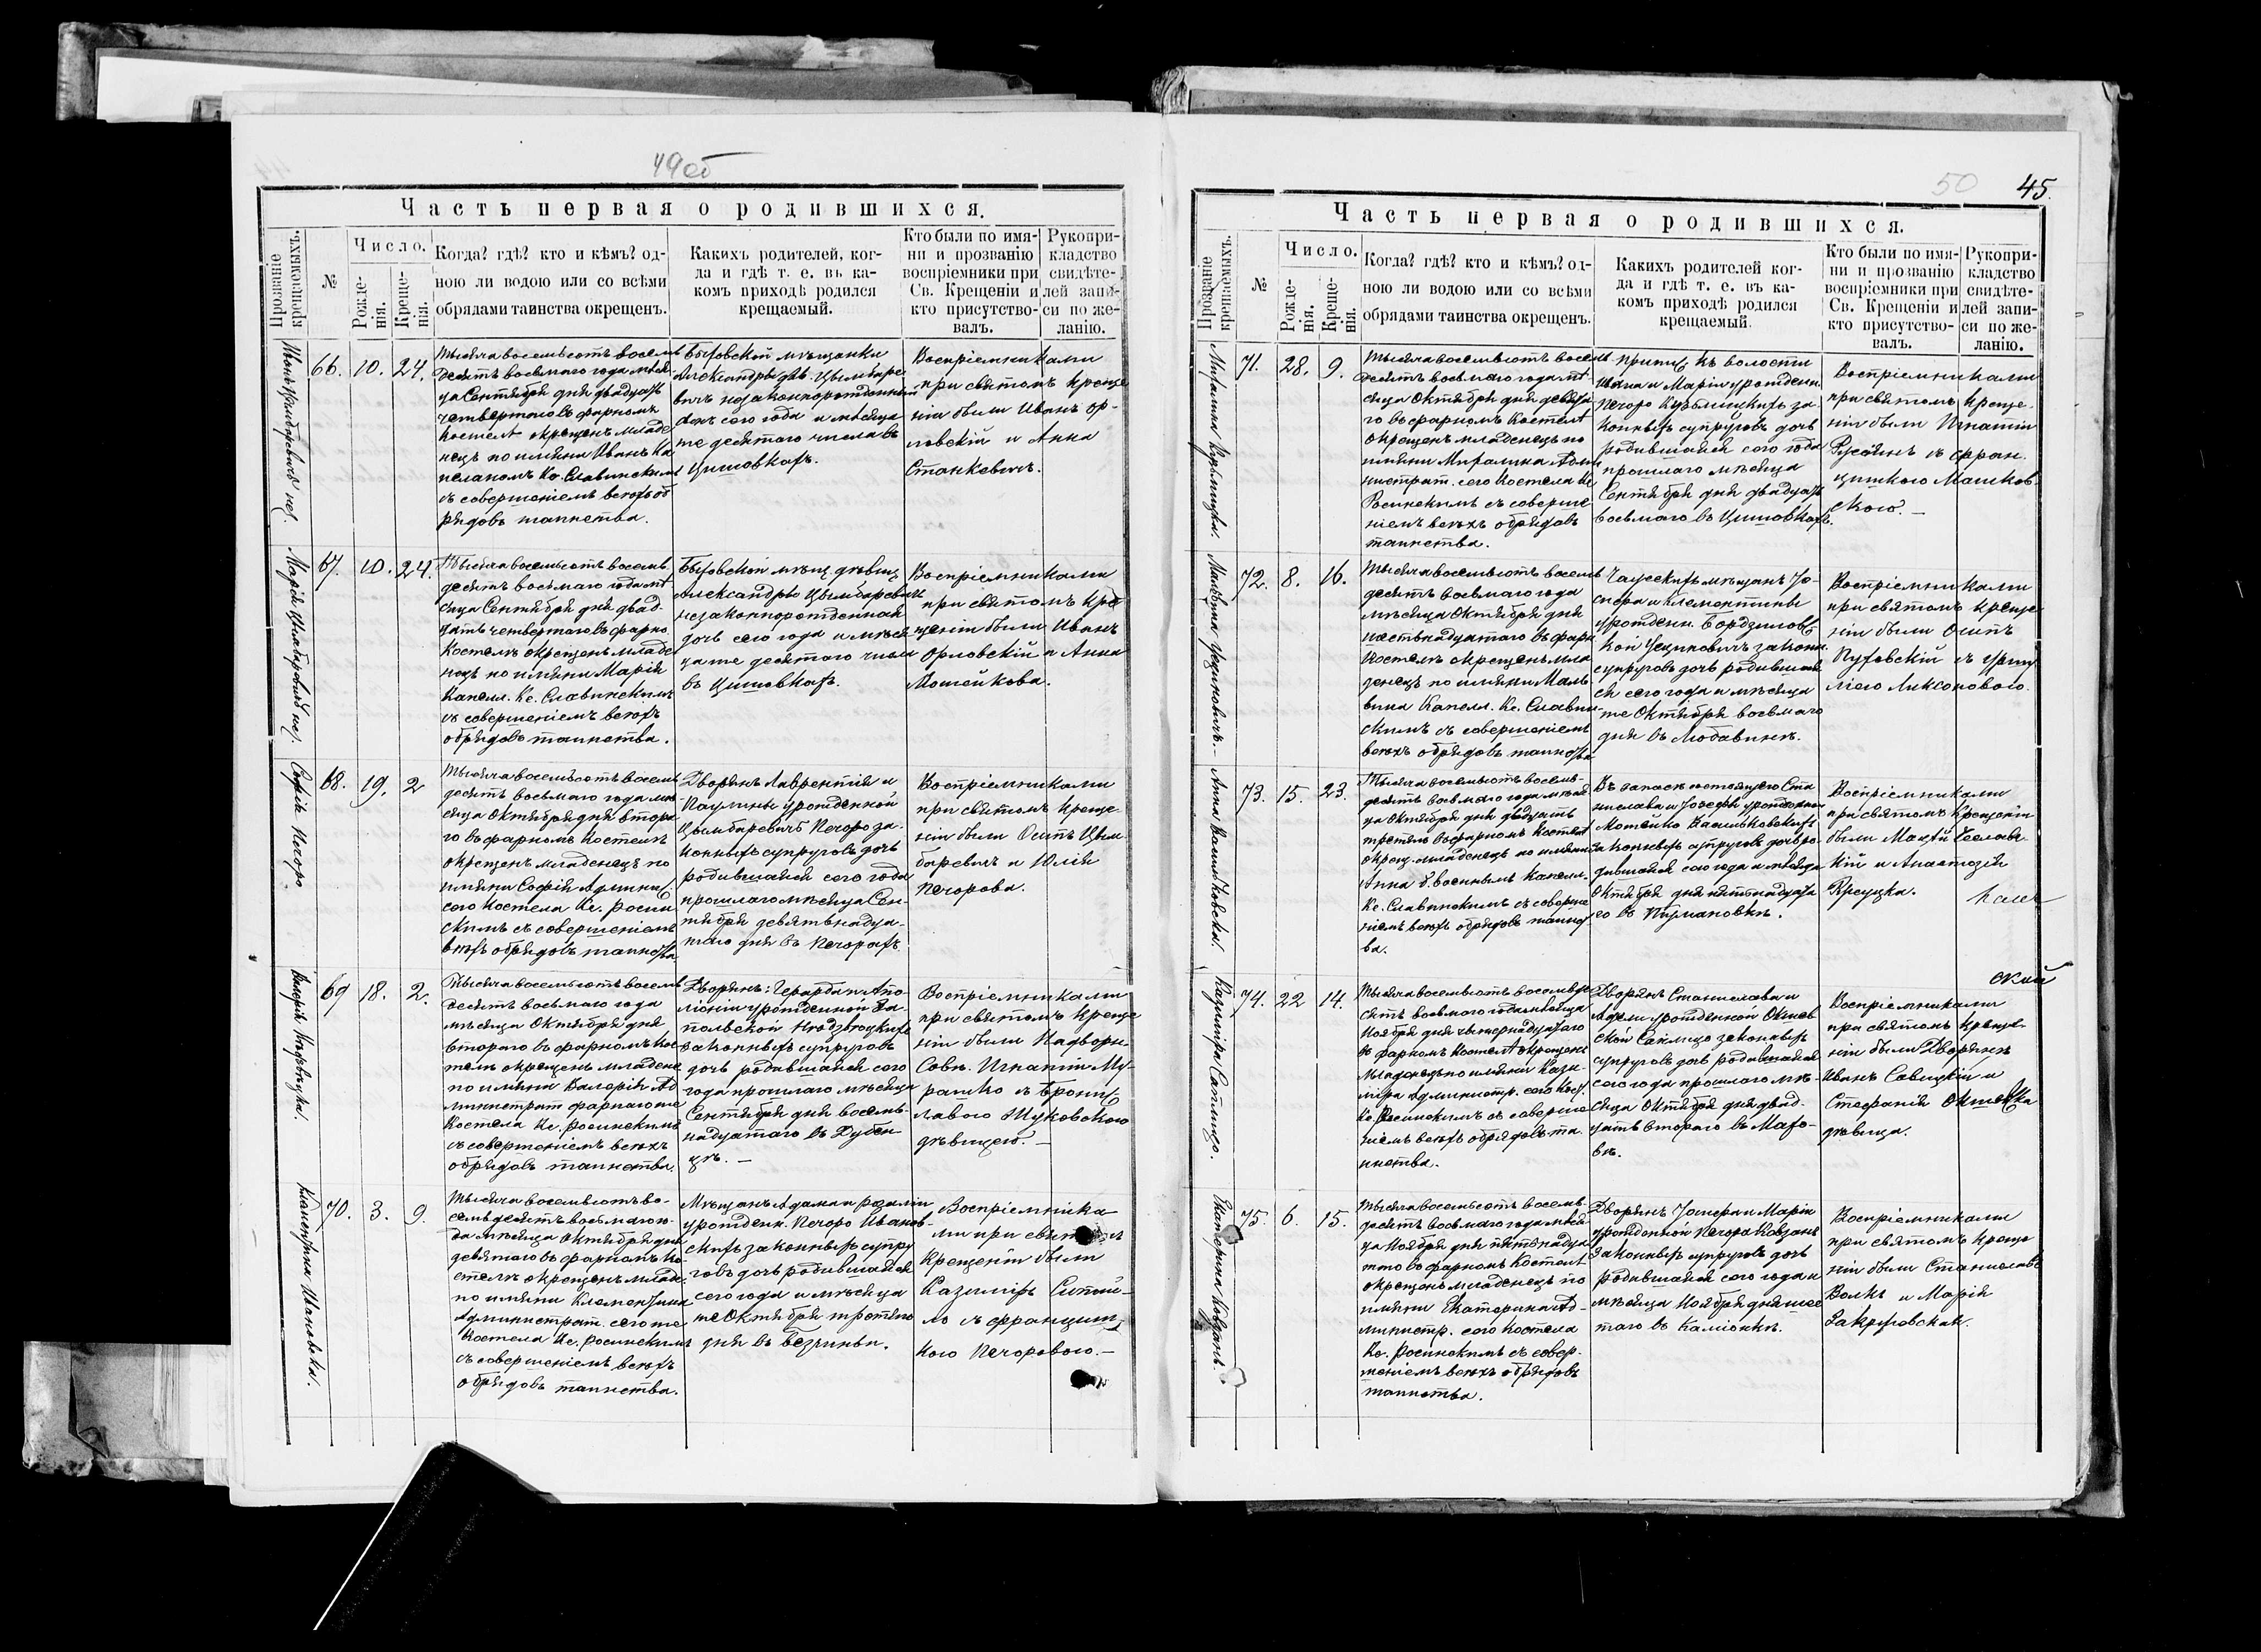 49об
Часть первая о родившихся.
Прозваніе крещаемыхъ.
№
Число.
Рожде-
нія.
Креще-
нія.
Когда? гдѣ? кто и кѣмъ? од-
ною ли водою или со всѣми
обрядами таинства окрещенъ.
Какихъ родителей, ког-
да и гдѣ т. е. въ ка-
комъ приходѣ родился
крещаемый.
Кто были по имя-
ни и прозванію
воспріемники при
Св. Крещеніи и
кто присутство-
валъ.
Рукопри-
кладство
свидѣте-
лей запи-
си по же-
ланію.
66. 10. 24.
Тысяча восемьсотъ восемь
десятъ восьмаго года мѣся
ца Сентября дня двадцать
четвертаго въ фарномъ
костелѣ окрещенъ младе
нецъ по имяни Иванъ Ка
пеланомъ Кс. Славинскимъ
съ совершеніемъ всѣхъ об
рядовъ таинства.
Быховской мѣщанки
Александры дѣв. Цымбаре
вичъ незаконнорожденный
сынъ сего года и мѣсяца
же десятаго числа въ
Цишовкахъ.
Воспріемниками
при святомъ креще
ніи были Иванъ Ор-
ловскій и Анна
Станкевичъ.
Марія Цымбаревичъ нез.
67. 10. 24.
Тысяча восемьсотъ восемь
десятъ восьмаго года мѣ
сяца Сентября дня двад-
цать четвертаго въ фарно.
Костелѣ окрещенъ младе
нецъ по имяни Марія
Капелл. Кс. Славинскимъ
съ совершеніемъ всѣхъ
обрядовъ таинства.
Быховской мѣщ. дѣвиц
Александры Цымбаревичъ
незаконнорожденная
дочь сего года и мѣся
ца же десятаго числа
въ Цишовкахъ.
Воспріемниками
при святомъ кре
щеніи были Иванъ
Орловскій и Анна
Мошейкова.
Софія Печоро
68. 19. 2
Тысяча восемьсотъ восемь
десятъ восьмаго года мѣ-
сяца Октября дня втора
го въ фарномъ Костелѣ
окрещенъ младенецъ по
имяни Софія Админис.
сего Костела Кс. Росин
скимъ съ совершеніемъ
всѣхъ обрядовъ таинства
Дворянъ Лаврентія и
Паулины урожденной
Цымбаревичъ Печоро за-
конныхъ супруговъ дочь
родившаяся сего года
прошлаго мѣсяца Сен-
тября девятьнадца-
таго дня въ Печорахъ.
Воспріемниками
при святомъ креще
ніи были Осипъ Цым
баревичъ и Юлія
Печорова.
69 18. 2.
Тысяча восемьсотъ восемь
десятъ восьмаго года
мѣсяца Октября дня
втораго въ фарномъ Кос
телѣ окрещенъ младенец
по имяни Валерія Ад
министрат. фарнаго же
Костела Кс. Росинскимъ
съ совершеніемъ всѣхъ
обрядовъ таинства.
Дворянъ: Герарда и Апо-
лоніи урожденной
законныхъ супруговъ
дочь родившаяся сего
года прошлаго мѣсяца
Сентября дня восемь-
надцатаго въ Дубен
цѣ. –
Воспріемниками
при святомъ креще
ніи были Надворн.
Совѣ. Игнатій Му-
рашко съ Бронис
лавою Жуковскою
дѣвицею. –
Клементина Ивановска.
70. 3. 9.
Тысяча восемьсотъ во-
семьдесятъ восьмаго го-
да мѣсяца Октября дня
девятаго въ фарномъ Ко-
стелѣ окрещенъ младе-
по имяни Клементина
Администрат. сего же
Костела Кс. Росинскимъ
съ совершеніемъ всѣхъ
обрядовъ таинства.
Мѣщанъ Адама и Розаліи
урожденн. Печоро Иванов-
скихъ законныхъ супру
говъ дочь родившаяся
сего года и мѣсяца
же Октября третяго
дня въ
Воспріемника
ми при святомъ
крещеніи были
Казимиръ
съ францишк
кою Печоровою. –
50 45.
Часть первая о родившихся.
Прозваніе крещаемыхъ.
№
Число.
Рожде-
нія.
Креще-
нія.
Когда? гдѣ? кто и кѣмъ? од-
ною ли водою или со всѣми
обрядами таинства окрещенъ.
Какихъ родителей ког-
да и гдѣ т. е. въ ка-
комъ приходѣ родился
крещаемый.
Кто были по имя-
ни и прозванію
воспріемники при
Св. Крещеніи и
кто присутство-
валъ.
Рукопри-
кладство
свидѣте-
лей запи-
си по же-
ланію.
71. 28. 9.
Тысяча восемьсотъ восемь
десятъ восьмаго года мѣ
сяца Октября дня девята
го въ фарномъ Костелѣ
окрещенъ младенецъ по
имяни Михалина Адми
нистрат. сего Костела Кс
Росинскимъ съ соверше
ніемъ всѣхъ обрядовъ
таинства.
Припис. къ волости
Ивана и Маріи урожденн.
Печоро за-
конныхъ супруговъ дочь
родившаяся сего года
прошлаго мѣсяца
Сентября дня двадцать
восьмаго въ Цишовкахъ.
Воспріемниками
при святомъ креще-
ніи были Игнатій
съ фран-
цишкою Машков-
скою. –
72. 8. 16.
Тысяча восемьсотъ восемь
десятъ восьмаго года
мѣсяца Октября дня
шестьнадцатаго въ фарн
Костелѣ окрещенъ мла
денецъ по имяни Маль
вина Капелл. Кс. Славин-
скимъ съ совершеніемъ
всѣхъ обрядовъ таинства
Чаусскихъ мѣщанъ Іо-
сифа и Клементины
урожденн.
законн.
супруговъ дочь родившая
ся сего года и мѣсяца
же Октября восьмаго
дня въ Любавинѣ.
Воспріемниками
при святомъ креще
ніи были Осипъ
73. 15. 23.
Тысяча восемьсотъ восемь-
десятъ восьмаго года мѣся
ца Октября дня двадцать
третяго въ фарномъ Костелѣ
окрещ. младенецъ по имяни
Анна б. военнымъ капелл.
Кс. Славинскимъ съ соверше
ніемъ всѣхъ обрядовъ таинст
ва.
Въ запасѣ состоящаго Ста
нислава и Іозефы урожденной
Мотейко
законныхъ супруговъ дочь ро-
дившаяся сего года и мѣсяца
Октября дня пятьнадцата
го въ
Воспріемниками
при святомъ крещеніи
были
и Анастазія
74. 22 14.
Тысяча восемьсотъ восемьде
сятъ восьмаго года мѣсяца
Ноября дня четырнадцатаго
въ фарномъ Костелѣ окрещенъ
младенецъ по имяни Кази-
міра Администр. сего Кост.
Кс. Росинскимъ съ соверше
ніемъ всѣхъ обрядовъ та-
инства.
Дворянъ Станислава и
Адели урожденной
законныхъ
супруговъ дочь родившаяся
сего года прошлаго мѣ-
сяца Октября дня двад-
цать втораго въ Махо-
вѣ.
Воспріемниками
при святомъ креще-
ніи были Дворянинъ
Иванъ Савицкій и
Стефанія
дѣвица.
Екатерина
75. 6. 15.
Тысяча восемьсотъ восемь-
десятъ восьмаго года мѣся
ца Ноября дня пятьнадца
таго въ фарномъ Костелѣ
окрещенъ младенецъ по
имяни Екатерина Ад-
министр. сего Костела
Кс. Росинскимъ съ совер-
шеніемъ всѣхъ обрядовъ
таинства.
Дворянъ Іосифа и Маріи
урожденной Печора
законныхъ супруговъ дочь
родившаяся сего года и
мѣсяца Ноября дня шес
таго въ Каміонкѣ.
Воспріемниками
при святомъ креще
ніи были Станиславъ
Волкъ и Марія